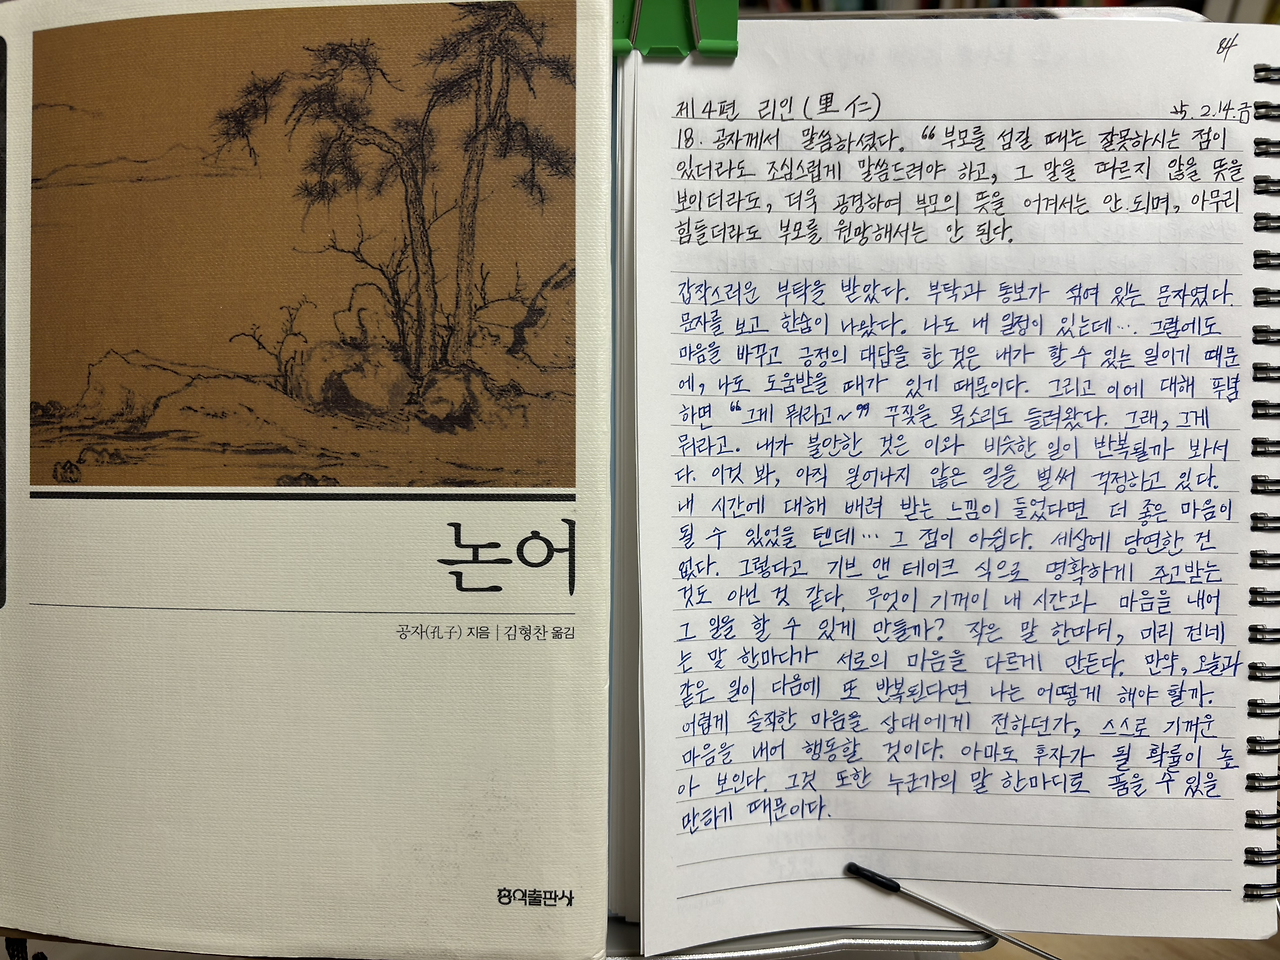 논어
공자(孔子) 지음 | 김형찬 옮김
홍익출판사
84
제 4편 리인(里仁) 25. 2.14.금
18. 공자께서 말씀하셨다. "부모를 섬길 때는 잘못하시는 점이
있더라도 조심스럽게 말씀드려야 하고, 그 말을 따르지 않을 뜻을
보이더라도, 더욱 공경하여 부모의 뜻을 어겨서는 안 되며, 아무리
힘들더라도 부모를 원망해서는 안 된다.
갑작스러운 부탁을 받았다. 부탁과 통보가 섞여 있는 문자였다.
문자를 보고 한숨이 나왔다. 나도 내 일정이 있는데... 그럼에도
마음을 바꾸고 긍정의 대답을 한 것은 내가 할 수 있는 일이기 때문
에, 나도 도움받을 때가 있기 때문이다. 그리고 이에 대해 푸념
하면 "그게 뭐라고~" 꾸짖을 목소리도 들려왔다. 그래, 그게
뭐라고. 내가 불안한 것은 이와 비슷한 일이 반복될까 봐서
다. 이것 봐, 아직 일어나지 않은 일을 벌써 걱정하고 있다.
내 시간에 대해 배려 받는 느낌이 들었다면 더 좋은 마음이
될 수 있었을 텐데... 그 점이 아쉽다. 세상에 당연한 건
없다. 그렇다고 기브 앤 테이크 식으로 명확하게 주고받는
것도 아닌 것 같다. 무엇이 기꺼이 내 시간과 마음을 내어
그 일을 할 수 있게 만들까? 작은 말 한마디, 미리 건네
는 말 한마디가 서로의 마음을 다르게 만든다. 만약, 오늘과
같은 일이 다음에 또 반복된다면 나는 어떻게 해야 할까.
어렵게 솔직한 마음을 상대에게 전하던가, 스스로 기꺼운
마음을 내어 행동할 것이다. 아마도 후자가 될 확률이 높
아 보인다. 그것 또한 누군가의 말 한마디로 품을 수 있을
만하기 때문이다.